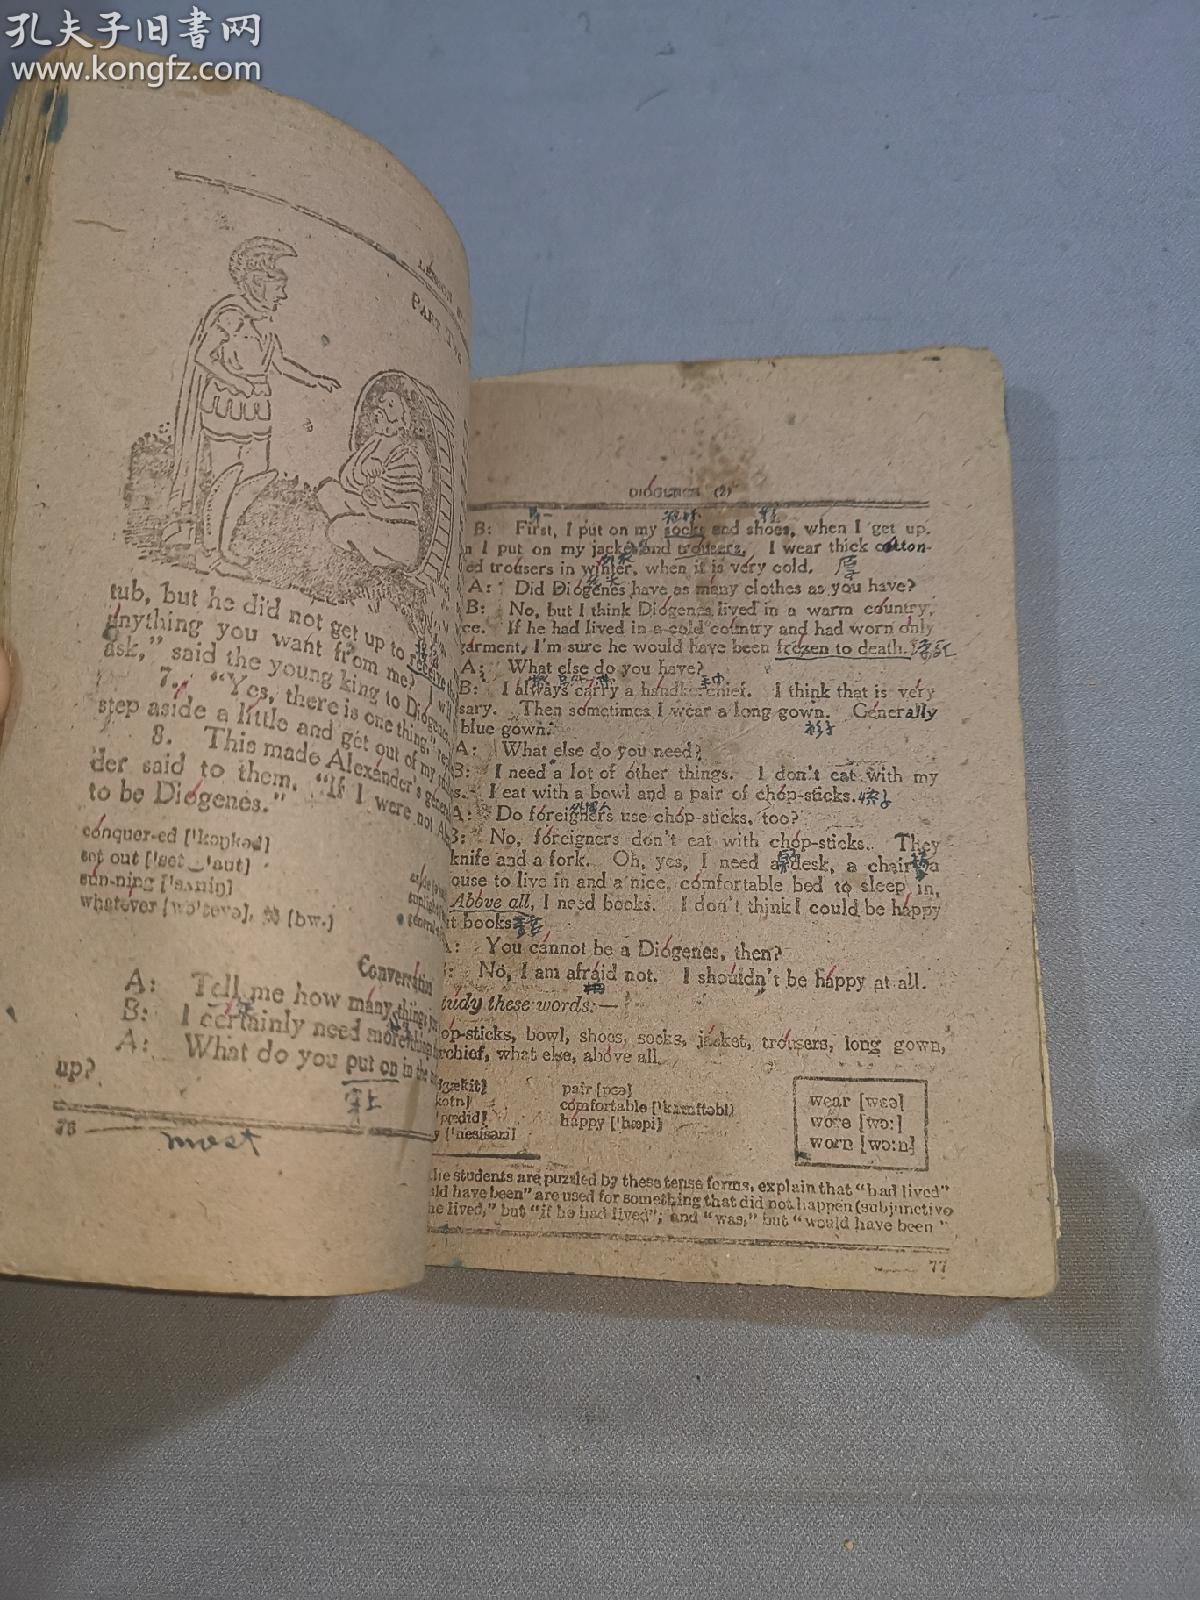 孔夫子旧書网
www.kongfz.com
tub, but he did not get up to receive
anything you want from me?
ask," said the young king to Diógenes
7. "Yes, there is one thing,"
step aside a little and get out of my
8. This made Alexánder's
der said to them, "If I were not
to be Diógenes."
cónquer-ed ['kɔŋkəd]
set out ['set 'aut]
sún-ning ['sʌniŋ]
Conversátion
A: Tell me how mány things
B: I cértainly need more
A: What do you put on in the
up?
76
most
DIÓGENES (2)
B: First, I put on my socks and shoes, when I get up.
I put on my jácket and tróusers. I wear thick cótton-
ed tróusers in wínter, when it is very cold. 厚
A: Did Diógenes have as mány clothes as you have?
B: No, but I think Diógenes lived in a warm cóuntry,
If he had lived in a cold cóuntry and had worn ónly
gárment, I'm sure he would have been frózen to death. 冻死
A: What else do you have?
B: I álways cárry a hándkerchief. I think that is véry
sary. Then sómetimes I wear a long gown. Génerally
blue gown.
A: What else do you need?
B: I need a lot of óther things. I don't eat with my
I eat with a bowl and a pair of chóp-sticks.
A: Do fóreigners use chóp-sticks, too?
外国人
B: No, fóreigners don't eat with chóp-sticks. They
knife and a fork. Oh, yes, I need a desk, a chair, a
ouse to live in and a nice, cómfortable bed to sleep in.
Abóve all, I need books. I don't think I could be háppy
books
A: You cánnot be a Diógenes, then?
No, I am afráid not. I shóuldn't be háppy at all.
these words:—
op-sticks, bowl, shoes, socks, jácket, tróusers, long gown,
rchief, what else, abóve all.
pair [pɛə]
cómfortable ['kʌmftəbl]
háppy ['hæpi]
wear [wɛə]
wore [wɔ:]
worn [wɔ:n]
students are puzzled by these tense forms, explain that "had lived"
ld have been" are used for something that did not happen (subjunctive
he lived," but "if he had lived"; and "was," but "would have been"
77